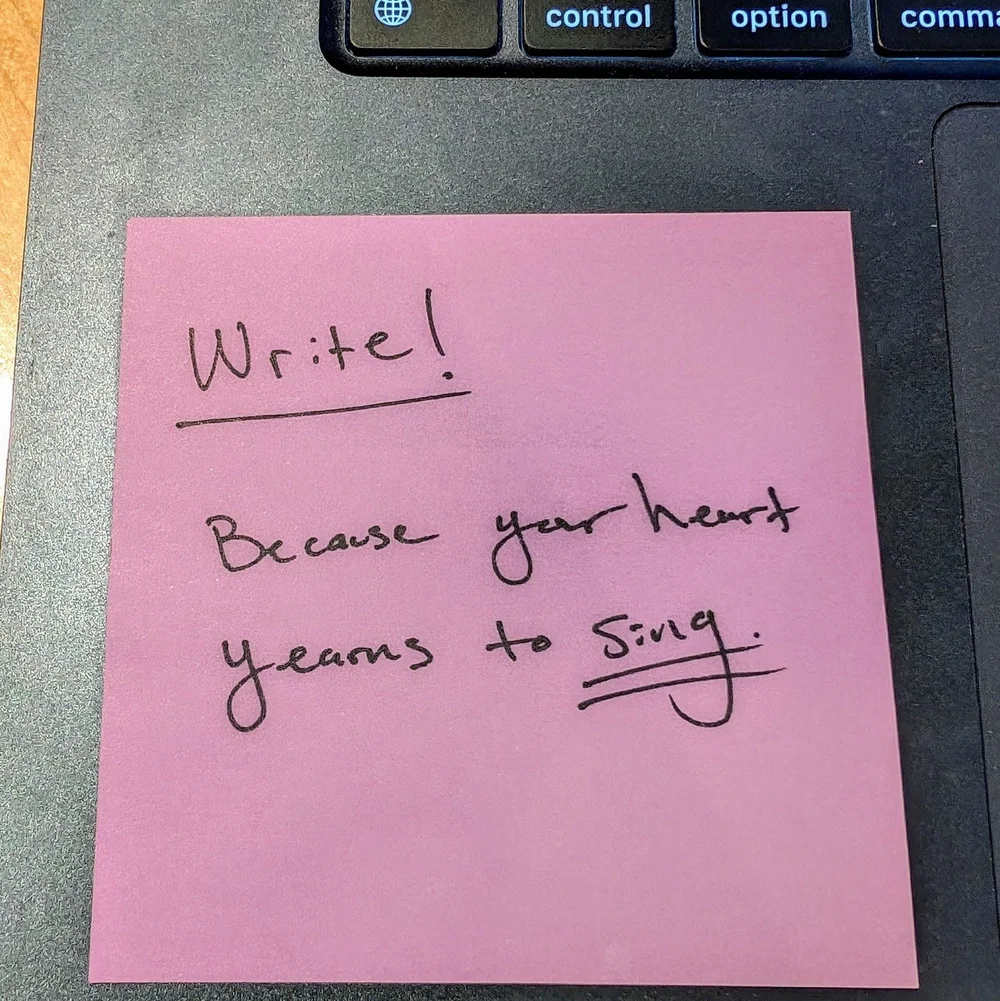 control option comma
Write!
Because your heart
yearns to sing.